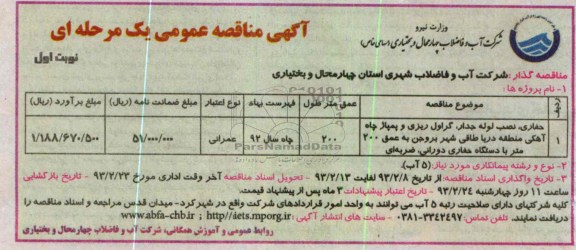 وزارت نیرو
شرکت آب و فاضلاب چهارمحال و بختیاری (سهامی خاص)
آگهی مناقصه عمومی یک مرحله ای
نوبت اول
مناقصه گذار: شرکت آب و فاضلاب شهری استان چهارمحال و بختیاری
۱- نام پروژه ها:
ردیف موضوع مناقصه عمق متر طول فهرست بهاء نوع اعتبار مبلغ ضمانت نامه (ریال) مبلغ برآورد (ریال)
۱ حفاری، نصب لوله جدار، گراول ریزی و پمپاژ چاه آهکی منطقه دریا طاقی شهر بروجن به عمق ۲۰۰ متر با دستگاه حفاری دورانی، ضربه‌ای ۲۰۰ چاه سال ۹۲ عمرانی ۵۱/۰۰۰/۰۰۰ ۱/۱۸۸/۶۷۰/۵۰۰
ParsNamadData
۲- نوع و رشته پیمانکاری مورد نیاز: (۵ آب).
۳- تاریخ واگذاری اسناد مناقصه: از تاریخ ۹۳/۲/۸ لغایت ۹۳/۲/۱۳ - تحویل اسناد مناقصه آخر وقت اداری مورخ ۹۳/۲/۲۳ - تاریخ بازگشایی
ساعت ۱۱ روز چهارشنبه ۹۳/۲/۲۴ - تاریخ اعتبار پیشنهادات ۳ ماه پس از پیشنهاد قیمت.
کلیه شرکتهای دارای صلاحیت رتبه ۵ آب می توانند به واحد امور قراردادهای شرکت واقع در شهرکرد- میدان قدس مراجعه و اسناد مناقصه را
دریافت نمایند. تلفن تماس: ۳۳۴۲۴۹۷-۰۳۸۱ - سایت های انتشار آگهی: http://iets.mporg.ir ; www.abfa-chb.ir
روابط عمومی و آموزش همگانی، شرکت آب و فاضلاب چهارمحال و بختیاری